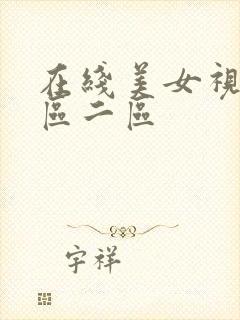 在綫美女視
區二區
宇祥